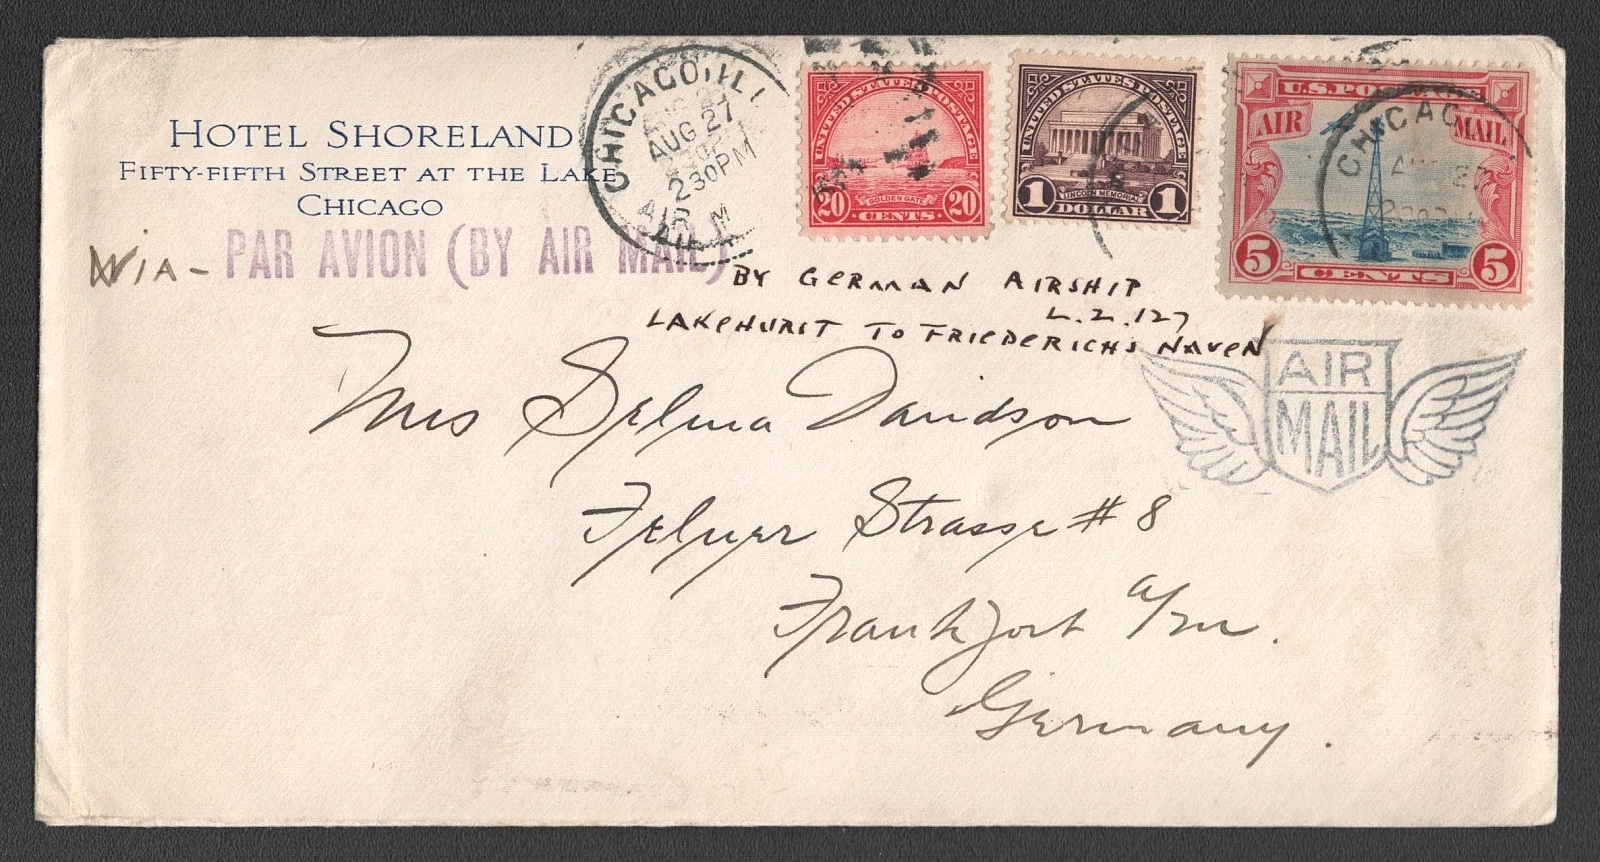 HOTEL SHORELAND
FIFTY-FIFTH STREET AT THE LAKE
CHICAGO
CHICAGO, ILL
AUG 27
2 30PM
AIR M
UNITED STATES POSTAGE
GOLDEN GATE
20 CENTS 20
UNITED STATES POSTAGE
LINCOLN MEMORIAL
1 DOLLAR 1
U.S. POSTAGE
AIR MAIL
CHICAG
5 CENTS 5
VIA - PAR AVION (BY AIR MAIL)
BY GERMAN AIRSHIP
L.Z.127
LAKEHURST TO FRIEDERICHSHAVEN
AIR
MAIL
Mrs Selma Davidson
Strasse # 8
Frankfort a/m.
Germany.